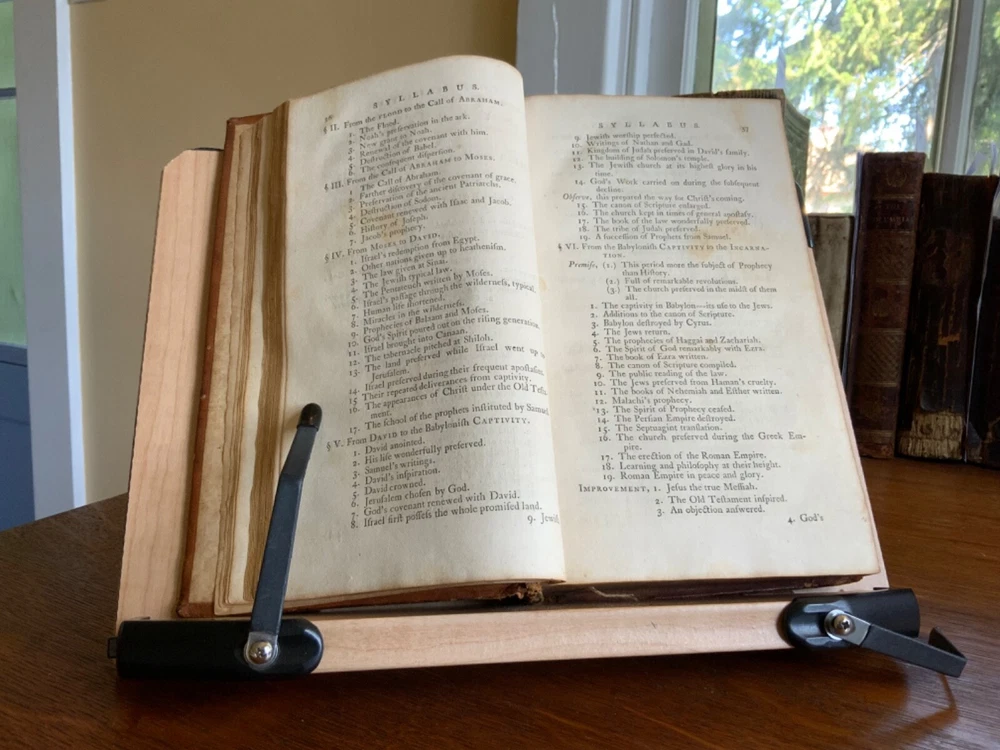 SYLLABUS.
§ II. From the FLOOD to the Call of ABRAHAM.
1. The Flood.
2. Noah's preſervation in the ark.
3. New grant to Noah.
4. Renewal of the covenant with him.
5. Deſtruction of Babel.
6. The conſequent diſperſion.
§ III. From the Call of ABRAHAM to MOSES.
1. The Call of Abraham.
2. Farther diſcovery of the covenant of grace.
3. Preſervation of the ancient Patriarchs.
4. Deſtruction of Sodom.
5. Covenant renewed with Iſaac and Jacob.
6. Hiſtory of Joſeph.
7. Jacob's prophecy.
§ IV. From MOSES to DAVID.
1. Iſrael's redemption from Egypt.
2. Other nations given up to heatheniſm.
3. The law given at Sinai.
4. The Jewiſh typical law.
5. The Pentateuch written by Moſes.
6. Iſrael's paſſage through the wilderneſs, typical.
7. Human life ſhortened.
8. Miracles in the wilderneſs.
9. Prophecies of Balaam and Moſes.
10. God's Spirit poured out on the riſing generation.
11. Iſrael brought into Canaan.
12. The tabernacle pitched at Shiloh.
13. The land preſerved while Iſrael went up to
Jeruſalem.
14. Iſrael preſerved during their frequent apoſtaſies.
15 Their repeated deliverances from captivity.
16. The appearances of Chriſt under the Old Teſta-
ment.
17. The ſchool of the prophets inſtituted by Samuel.
§ V. From DAVID to the Babyloniſh CAPTIVITY.
1. David anointed.
2. His life wonderfully preſerved.
3. Samuel's writings.
4. David's inſpiration.
5. David crowned.
6. Jeruſalem choſen by God.
7. God's covenant renewed with David.
8. Iſrael firſt poſſeſs the whole promiſed land.
9. Jewiſh
SYLLABUS. 37
9. Jewiſh worſhip perfected.
10. Writings of Nathan and Gad.
11. Kingdom of Judah preſerved in David's family.
12. The building of Solomon's temple.
13. The Jewiſh church at its higheſt glory in his
time.
14. God's Work carried on during the ſubſequent
decline.
Obſerve, this prepared the way for Chriſt's coming.
15. The canon of Scripture enlarged.
16. The church kept in times of general apoſtaſy.
17. The book of the law wonderfully preſerved.
18. The tribe of Judah preſerved.
19. A ſucceſſion of Prophets from Samuel.
§ VI. From the Babyloniſh CAPTIVITY to the INCARNA-
TION.
Premiſe, (1.) This period more the ſubject of Prophecy
than Hiſtory.
(2.) Full of remarkable revolutions.
(3.) The church preſerved in the midſt of them
all.
1. The captivity in Babylon—its uſe to the Jews.
2. Additions to the canon of Scripture.
3. Babylon deſtroyed by Cyrus.
4. The Jews return.
5. The prophecies of Haggai and Zachariah.
6. The Spirit of God remarkably with Ezra.
7. The book of Ezra written.
8. The canon of Scripture compiled.
9. The public reading of the law.
10. The Jews preſerved from Haman's cruelty.
11. The books of Nehemiah and Eſther written.
12. Malachi's prophecy.
13. The Spirit of Prophecy ceaſed.
14. The Perſian Empire deſtroyed.
15. The Septuagint tranſlation.
16. The church preſerved during the Greek Em-
pire.
17. The erection of the Roman Empire.
18. Learning and philoſophy at their height.
19. Roman Empire in peace and glory.
IMPROVEMENT, 1. Jeſus the true Meſſiah.
2. The Old Teſtament inſpired.
3. An objection anſwered.
4. God's